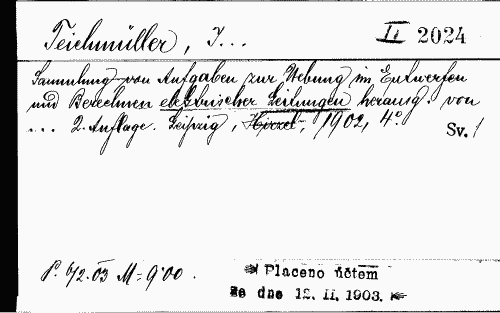 Teichmüller, J... II 2024
Sammlung von Aufgaben zur Uebung im Entwerfen
und Berechnen elektrischer Leitungen herausg. von
... 2. Auflage. Leipzig, Hirzel, 1902, 4° Sv. 1
P. 6/2.03 M=9.00.
Placeno účtem
ze dne 12. II. 1903.